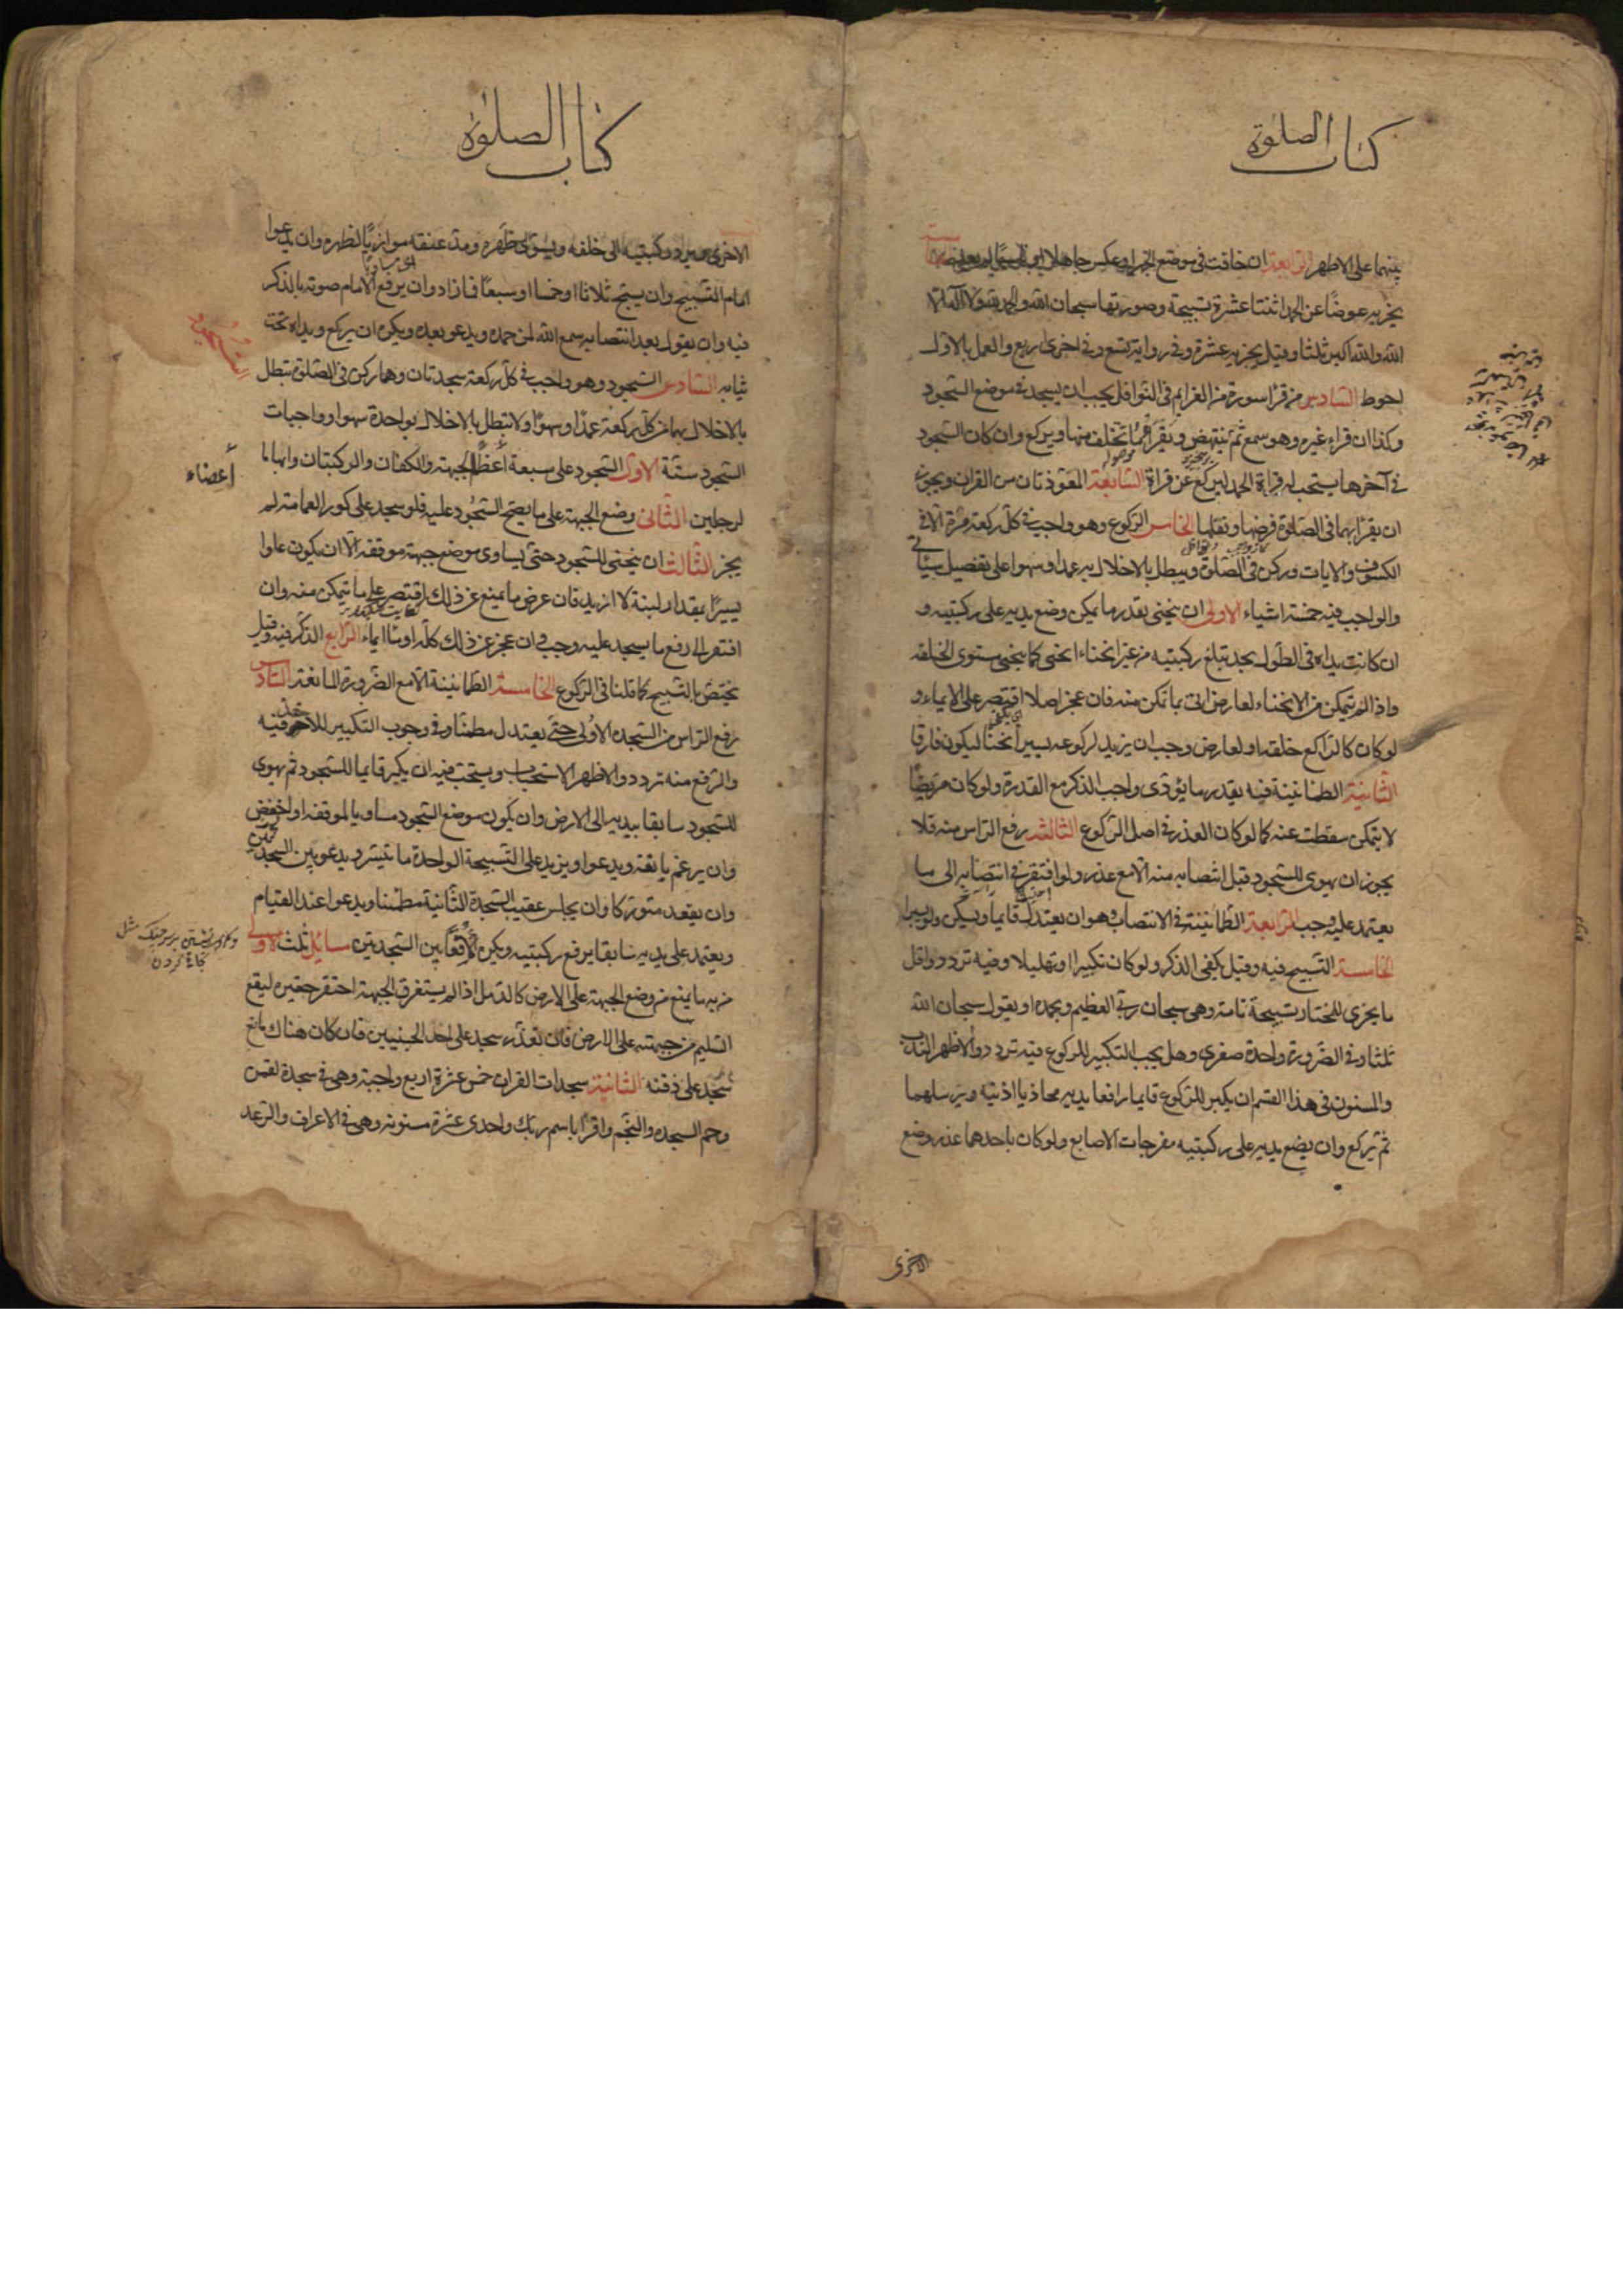 كتاب الصلوة
بينهما على الاظهر الرابعة ان خافت فى موضع الجهر او عكس جاهلا او ناسيا لم يعد الخامسة
يجزيه عوضا عن الحمد اثنتا عشرة تسبيحة وصورتها سبحان الله والحمد لله ولا اله الا
الله والله اكبر ثلثا وقيل يجزيه عشرة وفى رواية تسع وفى اخرى اربع والعمل بالاول
احوط السادس من قرا سورة من العزايم فى النوافل يجب ان يسجد فى موضع السجود
وكذا ان قراء غيره وهو سمع ثم ينهض ويقرا ما تخلف منها ويركع وان كان السجود
فى آخرها يستحب له قراءة الحمد ليركع عن قراة السابعة المعوذتان من القران ويجوز
ان يقرا بهما فى الصلوة فرضها ونفلها الخامس الركوع وهو واجب فى كل ركعة مرة الا فى
الكسوف والايات وركن فى الصلوة ويبطل بالاخلال به عمدا وسهوا على تفصيل سياتى
والواجب فيه خمسة اشياء الاولى ان ينحنى بقدر ما يمكن وضع يديه على ركبتيه و
ان كانت يداه فى الطول بحد تبلغ ركبتيه من غير انحناء انحنى كما ينحنى مستوى الخلقة
واذا لم يتمكن من الانحناء لعارض اتى بما تمكن منه فان عجز اصلا اقتصر على الايماء و
لو كان كالراكع خلقة او لعارض وجب ان يزيد لركوعه يسير انحناء ليكون فارقا
الثانية الطمانينة فيه بقدر ما يؤدى واجب الذكر مع القدرة ولو كان مريضا
لا يتمكن سقطت عنه كما لو كان العذر فى اصل الركوع الثالثة رفع الراس منه فلا
يجوز ان يهوى للسجود قبل انتصابه منه الا مع عذر ولو افتقر فى انتصابه الى ما
يعتمد عليه وجب الرابعة الطمانينة فى الانتصاب وهو ان يعتدل قايما ويسكن ولو يسيرا
الخامسة التسبيح فيه وقيل يكفى الذكر ولو كان تكبيرا او تهليلا وفيه تردد واقل
ما يجزى للمختار تسبيحة تامة وهى سبحان ربى العظيم وبحمده او يقول سبحان الله
ثلثا وفى الضرورة واحدة صغرى وهل يجب التكبير للركوع فيه تردد والاظهر الندب
والمسنون فى هذا القسم ان يكبر للركوع قايما رافعا يديه محاذيا اذنيه ويرسلهما
ثم يركع وان يضع يديه على ركبتيه مفرجات الاصابع ولو كان باحدهما عذر وضع
الاخرى
كتاب الصلوة
الاخرى ويرد ركبتيه الى خلفه ويسوى ظهره ويمد عنقه موازيا لظهره وان يدعوا
امام التسبيح وان يسبح ثلاثا او خمسا او سبعا فما زاد وان يرفع الامام صوته بالذكر
فيه وان يقول بعد انتصابه سمع الله لمن حمده ويدعو بعده ويكره ان يركع ويداه تحت
ثيابه السادس السجود وهو واجب فى كل ركعة سجدتان وهما ركن فى الصلوة تبطل
بالاخلال بهما من كل ركعة عمدا وسهوا ولا تبطل بالاخلال بواحدة سهوا وواجبات
السجود ستة الاول السجود على سبعة اعظم الجبهة والكفان والركبتان وابهاما
أعضاء
لرجلين الثانى وضع الجبهة على ما يصح السجود عليه فلو سجد على كور العمامة لم
يجز الثالث ان ينحنى للسجود حتى يساوى موضع جبهته موقفه الا ان يكون علوا
يسيرا بمقدار لبنة لا ازيد فان عرض ما يمنع عن ذلك اقتصر على ما يتمكن منه وان
افتقر الى رفع ما يسجد عليه وجب وان عجز عن ذلك كله اومأ ايماء الرابع الذكر فيه وقيل
يختص بالتسبيح كما قلنا فى الركوع الخامسة الطمانينة الا مع الضرورة المانعة السادس
رفع الراس من السجدة الاولى حتى يعتدل مطمئنا وفى وجوب التكبير للاخذ فيه
والرفع منه تردد والاظهر الاستحباب ويستحب فيه ان يكبر قايما للسجود ثم يهوى
للسجود سابقا بيديه الى الارض وان يكون موضع السجود مساويا لموقفه او اخفض
وان يرغم بانفه ويدعوا ويزيد على التسبيحة الواحدة ما تيسر ويدعو بين السجدتين
وان يقعد متوركا وان يجلس عقيب السجدة الثانية مطمئنا ويدعوا عند القيام
ويعتمد على يديه سابقا برفع ركبتيه ويكره الاقعاء بين السجدتين مسائل ثلث الاولى
من به ما يمنع من وضع الجبهة على الارض كالدمل اذا لم يستغرق الجبهة احتفر حفيرة ليقع
السليم من جبهته على الارض فان تعذر سجد على احد الجبينين فان كان هناك مانع
سجد على ذقنه الثانية سجدات القران خمس عشرة اربع واجبة وهى فى سجدة لقمن
وحم السجده والنجم واقرا باسم ربك واحدى عشرة مسنونة وهى فى الاعراف والرعد